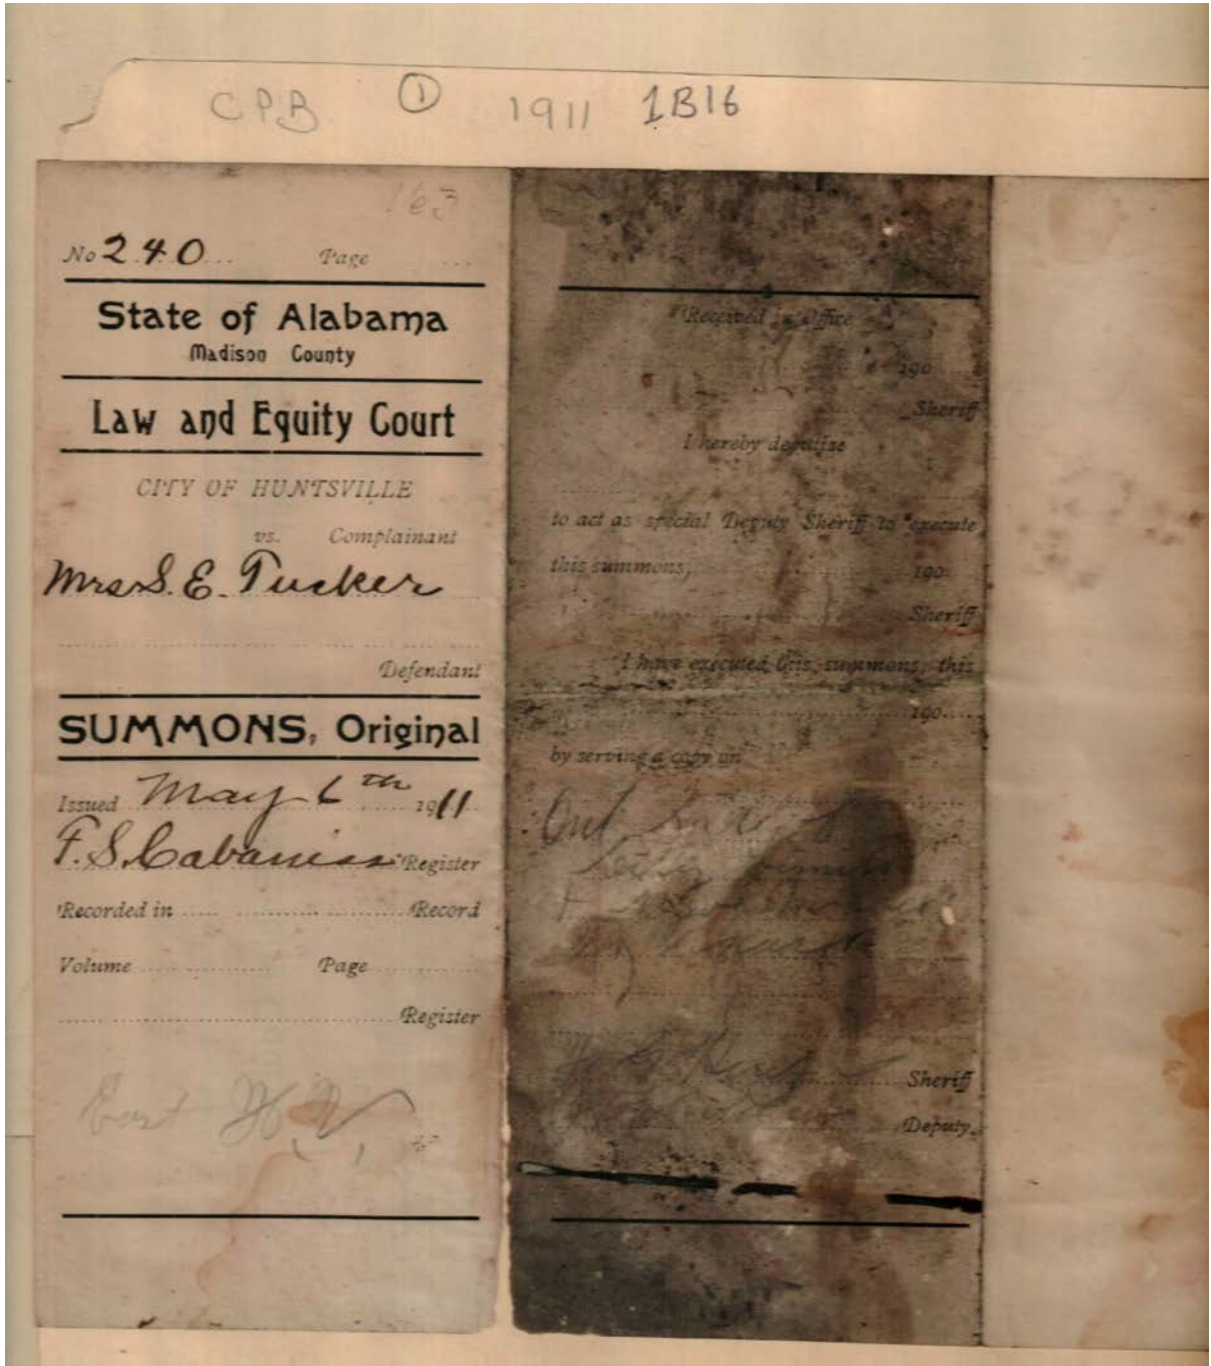 CPB 1 1911 1B16
No 240 Page
State of Alabama
Madison County
Law and Equity Court
CITY OF HUNTSVILLE
vs. Complainant
Mrs S. E. Tucker
Defendant
SUMMONS, Original
Issued May 6th 1911
F. S. Cabaniss Register
Recorded in Record
Volume Page
Register
East
Received in Office
190
Sheriff
I hereby deputise
to act as special Deputy Sheriff to execute
this summons, 190
Sheriff
I have executed this summons, this
190
by serving a copy on
Sheriff
Deputy.